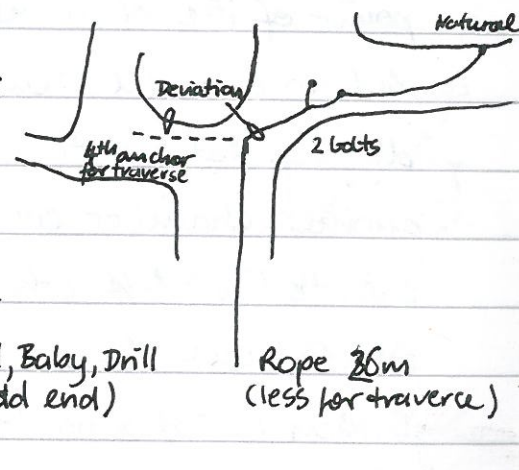 Natural
Deviation
4th anchor
for traverse
2 bolts
, Baby, Drill
end)
Rope 36m
(less for traverse)